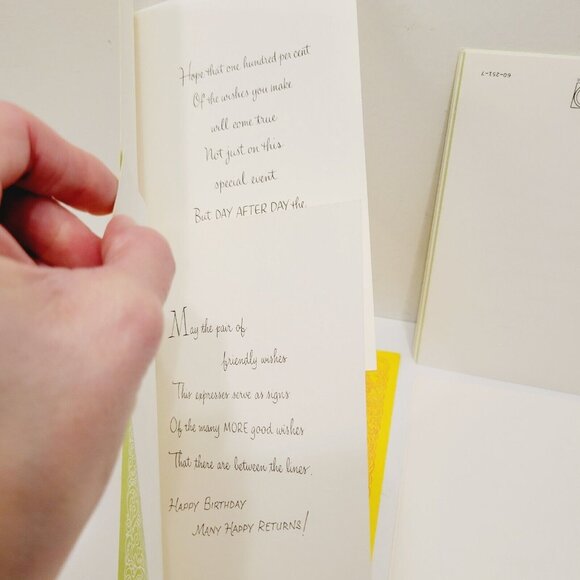 Hope that one hundred per cent
Of the wishes you make
will come true
Not just on this
special event
But DAY AFTER DAY the
May the pair of
friendly wishes
This expresses serve as signs
Of the many MORE good wishes
That there are between the lines.
HAPPY BIRTHDAY
MANY HAPPY RETURNS!
60-251-7